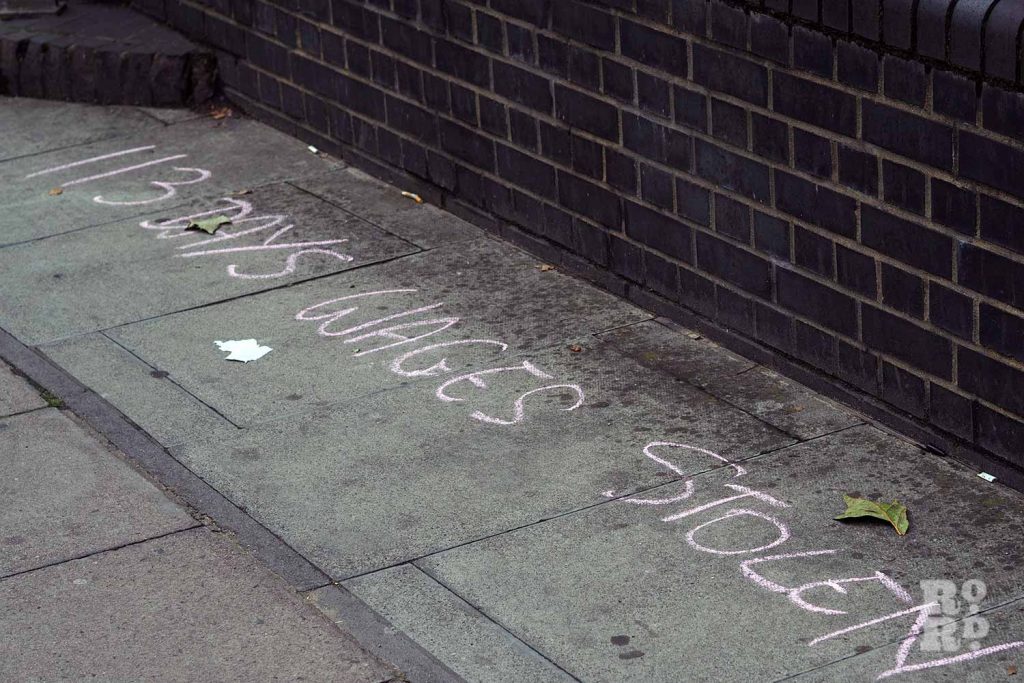 113 DAYS WAGES STOLEN
RO
RD.